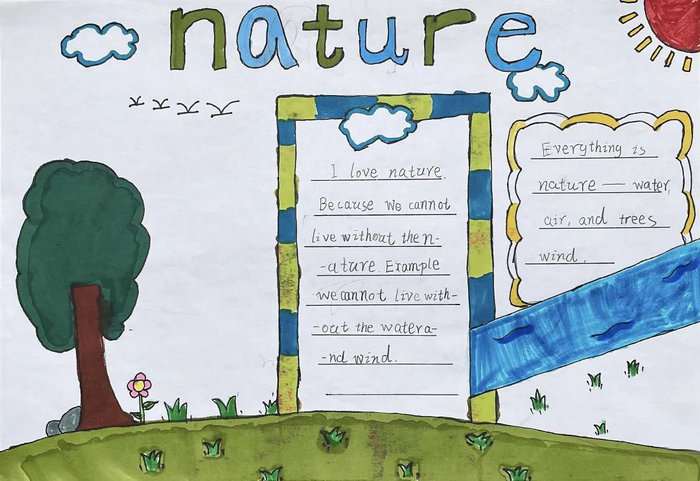 nature
I love nature.
Because we cannot
live without the n-
-ature. Example
we cannot live with-
-out the water a-
-nd wind.
Everything is
nature — water,
air, and trees
wind.